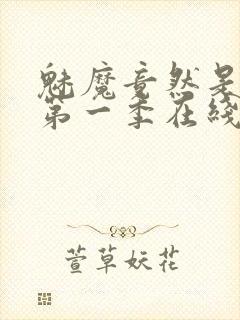 魅魔竟然是
第一季在线
萱草妖花